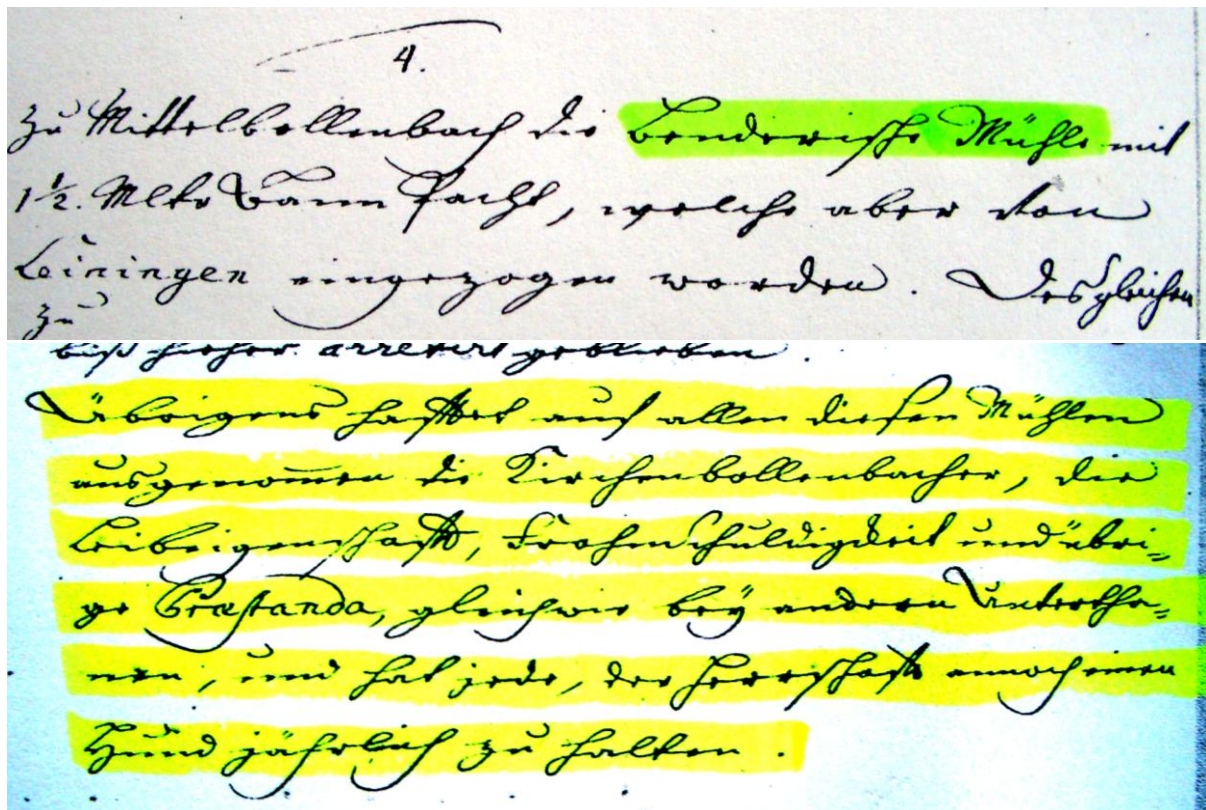 4.
Zu Mittelbollenbach die Benderische Mühle mit
1½. Mltr Bann Pacht, welche aber von
Leiningen eingezogen worden. Desgleichen
zu
biß hieher arretirt geblieben.
Übrigens hafftet auf allen diesen Mühlen
ausgenom̅en die Kirchenbollenbacher, die
Leibeigenschafft, Frohn Schuldigkeit und übri=
ge Præstanda, gleichwie bey andern Untertha=
nen, und hat jede, der Herrschafft annoch einen
Hund jährlich zu halten.